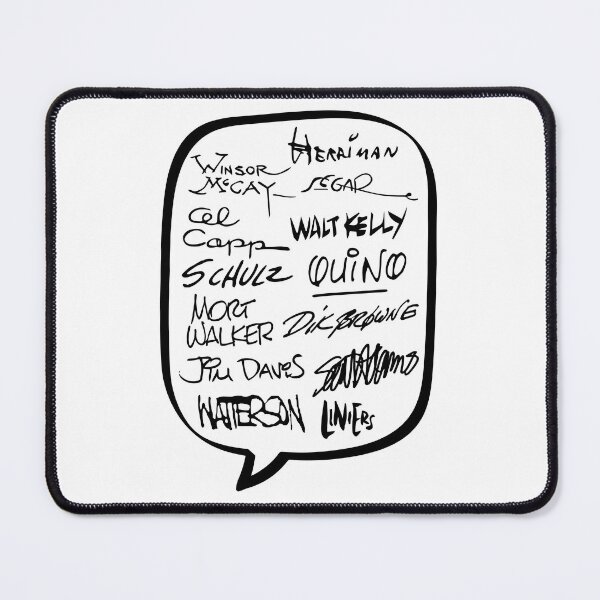 HERRIMAN
WINSOR
McCAY
SEGAR
Al
Capp
WALT KELLY
SCHULZ
QUINO
MORT
WALKER
DIK BROWNE
JIM DAVIS
Scott Adams
WATTERSON
LINIERS